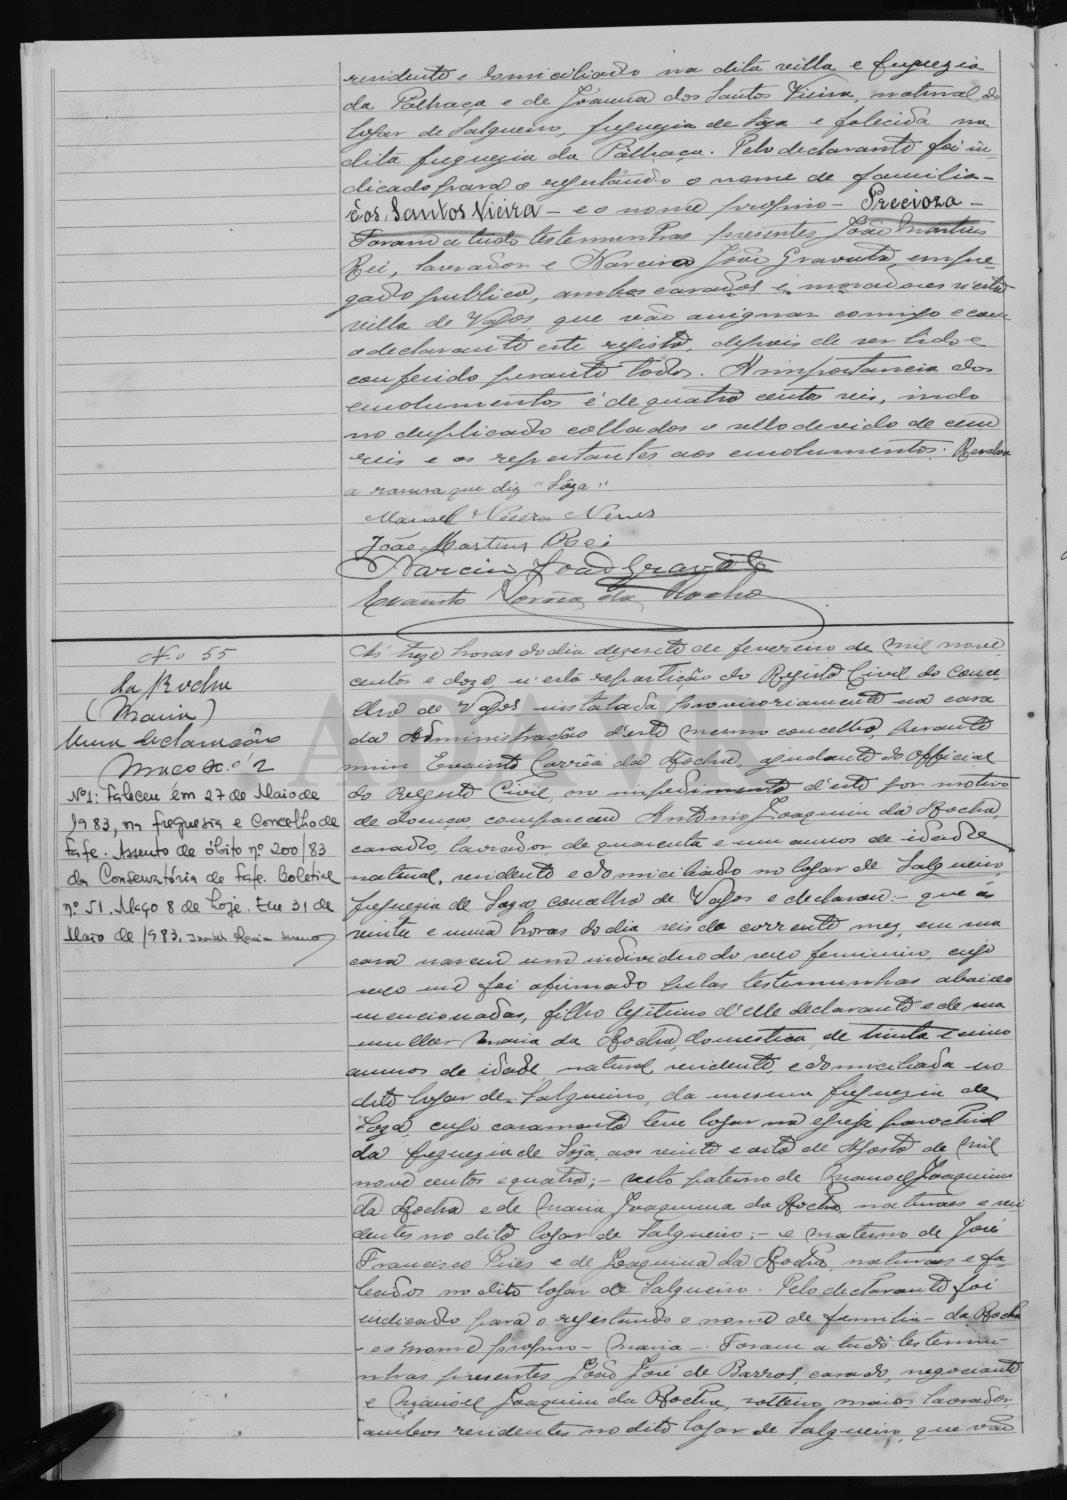 residente e domiciliado na dita villa e freguezia
da Palhaça e de Joanna dos Santos Vieira, natural do
logar de Salgueiro, freguezia de Sôza e falecida na
dita freguezia da Palhaça. Pelo declarante foi in-
dicado para o registando o nome de familia -
dos Santos Vieira - e o nome proprio - Precioza -
Foram a tudo testemunhas presentes João Martins
Rei, lavrador e Narcizo João Gravato, empre-
gado publico, ambos casados e moradores n'esta
villa de Vagos, que vão assignar comigo e com
o declarante este registo, depois de ser lido e
conferido perante todos. A importancia dos
emolumentos é de quatro centos reis, indo
no duplicado collados o sello devido de cem
reis e os respeitantes aos emolumentos. Resalvo
a rasura que diz "Sôza"
Manuel Vieira Neves
João Martins Rei
Narcizo João Gravato
Evaristo Corrêa da Rocha
N.o 55
da Rocha
(Maria)
Uma declaração
Maço n.o 2
Nº1: Faleceu em 27 de Maio de
1983, na freguesia e Concelho de
Fafe. Assento de óbito nº 200/83
da Conservatória de Fafe. Boletim
nº 51. Maço 8 de hoje. Em 31 de
Maio de 1983.
Ás treze horas do dia dezesete de fevereiro de mil nove
centos e doze, n'esta repartição do Registo Civil do conce-
lho de Vagos, installada provisoriamente na casa
da Administração d'este mesmo concelho, perante
mim Evaristo Corrêa da Rocha, ajudante do Official
do Registo Civil, no impedimento d'este por motivo
de doença compareceu Antonio Joaquim da Rocha,
casado, lavrador de quarenta e um annos de idade
natural, residente e domiciliado no logar de Salgueiro,
freguezia de Soza concelho de Vagos e declarou: - que ás
vinte e uma horas do dia seis do corrente mez, em sua
casa nasceu um individuo do sexo feminino, cujo
sexo me foi afirmado pelas testemunhas abaixo
mencionadas, filho legitimo d'elle declarante e de sua
mulher Maria da Rocha, domestica, de trinta e cinco
annos de idade, natural, residente e domiciliada no
dito logar de Salgueiro, da mesma freguezia de
Soza, cujo casamento teve logar na egreja parochial
da freguezia de Sôza, aos vinte e oito de Agosto de mil
nove centos e quatro; - neto paterno de Manoel Joaquim
da Rocha e de Maria Joaquina da Rocha, naturaes e resi-
dentes no dito logar de Salgueiro; - e materno de José
Francisco Pires e de Joaquina da Rocha, naturaes e fa-
lecidos no dito logar de Salgueiro. Pelo declarante foi
indicado para o registando o nome de familia - da Rocha
- e o nome proprio - Maria -. Foram a tudo testemu-
nhas presentes João José de Barros, casado, negociante
e Manoel Joaquim da Rocha, solteiro, maior, lavrador,
ambos residentes no dito logar de Salgueiro, que vão
ADAVR